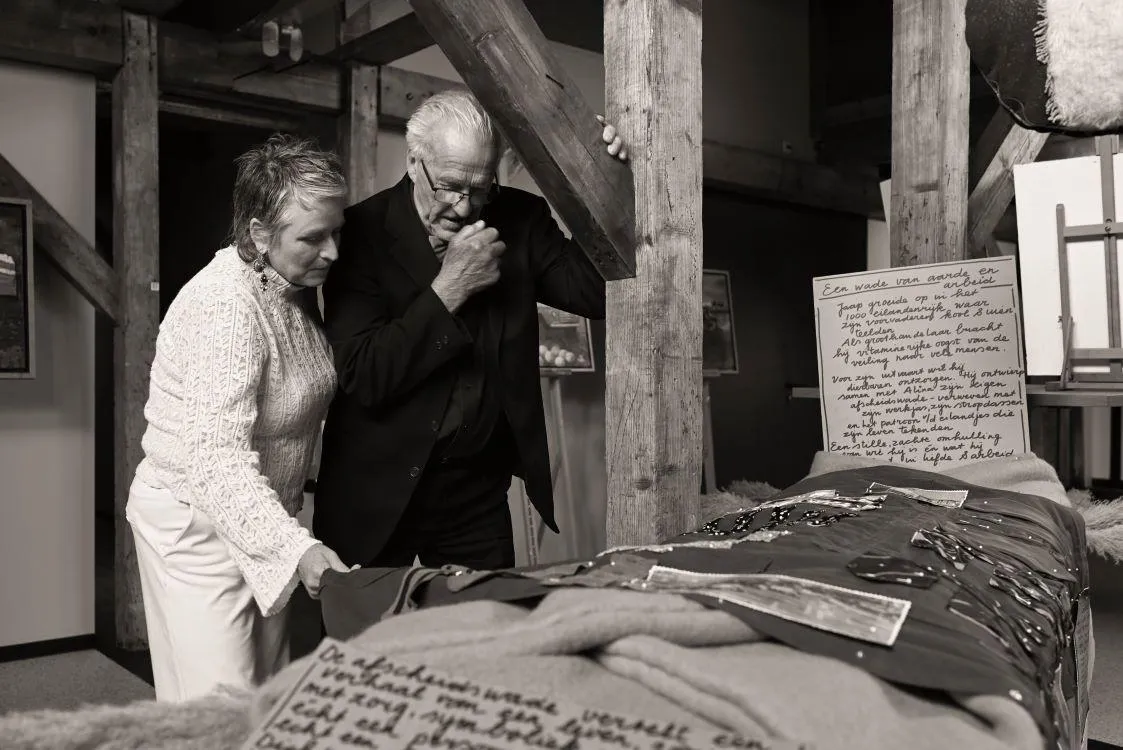 Een wade van aarde en
arbeid
Jaap groeide op in het
1000 eilandenrijk, waar
zijn voorvaderen kool & uien
teelden.
Als groothandelaar bracht
hij vitaminerijke oogst van de
veiling naar vele mensen.
Voor zijn uitvaart wil hij
dierbaren ontzorgen. Hij ontwierp
samen met Alina zijn eigen
afscheidswade - verweven met
zijn werkjas, zijn stropdassen
en het patroon v/d eilandjes die
zijn leven tekenden
Een stille, zachte omhulling
van wie hij is én wat hij
in liefde & arbeid
De afscheidswade vertelt een
verhaal van een leven,
met zorg, symboliek
echt een